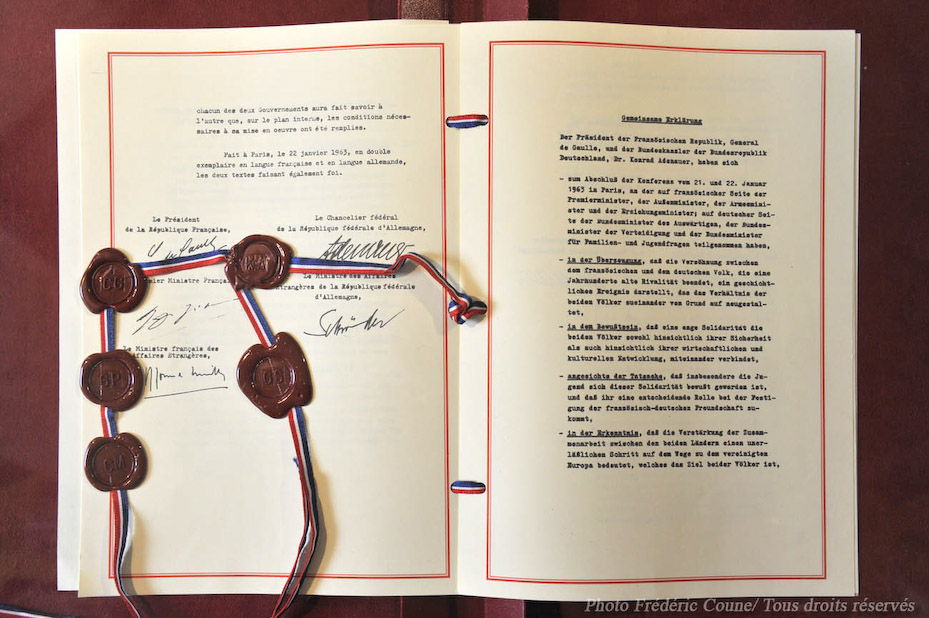 chacun des deux Gouvernements aura fait savoir à
l'autre que, sur le plan interne, les conditions néces-
saires à sa mise en oeuvre ont été remplies.
Fait à Paris, le 22 janvier 1963, en double
exemplaire en langue française et en langue allemande,
les deux textes faisant également foi.
Le Président
de la République Française,
Le Chancelier fédéral
de la République fédérale d'Allemagne,
Adenauer
Ministre Français
Le Ministre
étrangères de la République fédérale
d'Allemagne,
Schröder
Le Ministre français des
Affaires Etrangères,
CG
GP
CM
Gemeinsame Erklärung
Der Präsident der Französischen Republik, General
de Gaulle, und der Bundeskanzler der Bundesrepublik
Deutschland, Dr. Konrad Adenauer, haben sich
- zum Abschluß der Konferenz vom 21. und 22. Januar
1963 in Paris, an der auf französischer Seite der
Premierminister, der Außenminister, der Armeemini-
ster und der Erziehungsminister; auf deutscher Sei-
te der Bundesminister des Auswärtigen, der Bundes-
minister der Verteidigung und der Bundesminister
für Familien- und Jugendfragen teilgenommen haben,
- in der Überzeugung, daß die Versöhnung zwischen
dem französischen und dem deutschen Volk, die eine
Jahrhunderte alte Rivalität beendet, ein geschicht-
liches Ereignis darstellt, das das Verhältnis der
beiden Völker zueinander von Grund auf neugestal-
tet,
- in dem Bewußtsein, daß eine enge Solidarität die
beiden Völker sowohl hinsichtlich ihrer Sicherheit
als auch hinsichtlich ihrer wirtschaftlichen und
kulturellen Entwicklung, miteinander verbindet,
- angesichts der Tatsache, daß insbesondere die Ju-
gend sich dieser Solidarität bewußt geworden ist,
und daß ihr eine entscheidende Rolle bei der Festi-
gung der französisch-deutschen Freundschaft zu-
kommt,
- in der Erkenntnis, daß die Verstärkung der Zusam-
menarbeit zwischen den beiden Ländern einen uner-
läßlichen Schritt auf dem Wege zu dem vereinigten
Europa bedeutet, welches das Ziel beider Völker ist,
Photo Frédéric Coune/ Tous droits réservés